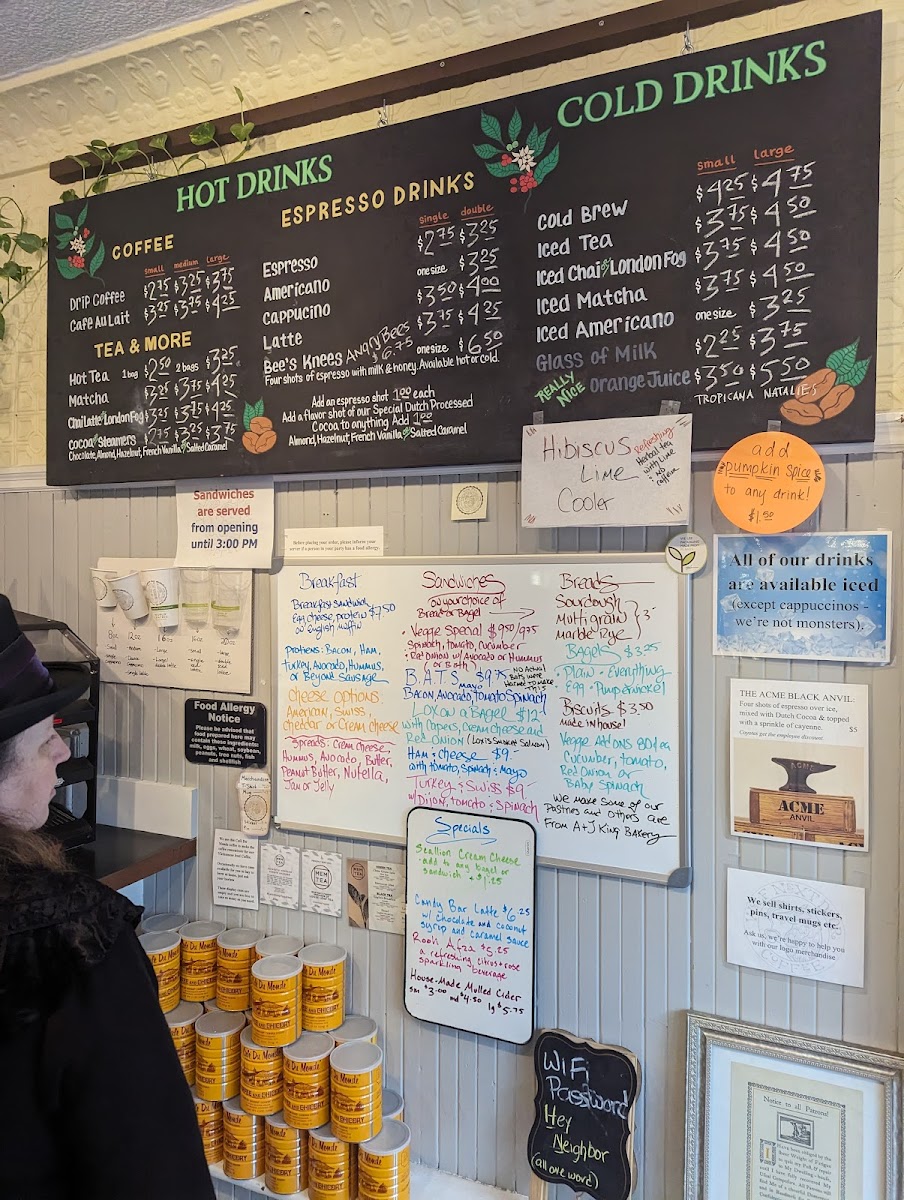 HOT DRINKS
COFFEE
small medium large
Drip Coffee $2.75 $3.25 $3.75
Cafe Au Lait $3.25 $3.75 $4.25
TEA & MORE
Hot Tea 1 bag $2.50 2 bags $3.25
Matcha $3.25 $3.75 $4.25
Chai Latte or London Fog $3.25 $3.75 $4.25
Cocoa or Steamers $2.75 $3.25 $3.75
Chocolate, Almond, Hazelnut, French Vanilla, or Salted Caramel
ESPRESSO DRINKS
single double
Espresso $2.75 $3.25
Americano one size $3.25
Cappucino $3.50 $4.00
Latte $3.75 $4.25
Bee's Knees Angry Bees $6.75 one size $6.50
Four shots of espresso with milk & honey. Available hot or cold.
Add an espresso shot 1.00 each
Add a flavor shot of our Special Dutch Processed
Cocoa to anything Add 1.00
Almond, Hazelnut, French Vanilla, or Salted Caramel
COLD DRINKS
small large
Cold Brew $4.25 $4.75
Iced Tea $3.75 $4.50
Iced Chai or London Fog $3.75 $4.50
Iced Matcha $3.75 $4.50
Iced Americano one size $3.25
Glass of Milk $2.25 $3.75
REALLY NICE Orange Juice $3.50 $5.50
TROPICANA NATALIES
Hibiscus
Lime
Cooler
Refreshing
Herbal tea
with Lime
NO
caffeine
add
pumpkin spice
to any drink!
$1.50
Sandwiches
are served
from opening
until 3:00 PM
Before placing your order, please inform your
server if a person in your party has a food allergy.
All of our drinks
are available iced
(except cappuccinos -
we're not monsters).
8oz
12oz
16oz
16oz
20oz
Food Allergy
Notice
Please be advised that
food prepared here may
contain these ingredients:
milk, eggs, wheat, soybean,
peanuts, tree nuts, fish
and shellfish
Breakfast
Breakfast Sandwich
Egg, cheese, protein $7.50
on English muffin
Protiens: Bacon, Ham,
Turkey, Avocado, Hummus,
or Beyond Sausage
Cheese options
American, Swiss,
cheddar or Cream cheese
Spreads: Cream cheese,
Hummus, Avocado, Butter,
Peanut Butter, Nutella,
Jam or Jelly
Sandwiches
on your choice of
Bread or Bagel
• Veggie Special $9.50/9.75
Spinach, tomato, cucumber
• Red Onion w/ Avocado or Hummus
(or Both)
B.A.T.S. mayo $9.75
NO Actual
Bats were
Harmed to make
this
Bacon Avocado, Tomato Spinach
Lox on a Bagel $12
with Capers, Cream Cheese and
Red Onion (Lori's Smoked Salmon)
Ham & cheese $9-
with tomato, Spinach & Mayo
Turkey & Swiss $9-
w/ Dijon, tomato & Spinach
Breads
Sourdough
Multigrain
Marble Rye
3-
Bagels $3.25
Plain - Everything
Egg - Pumpernickel
Biscuits $3.50
made in house!
Veggie Add ons 80¢ ea
Cucumber, tomato,
Red Onion or
Baby Spinach
We make some of our
Pastries and others are
From A+J King Bakery
THE ACME BLACK ANVIL.
Four shots of espresso over ice,
mixed with Dutch Cocoa & topped
with a sprinkle of cayenne. $5
Coyotes get the employee discount.
ACME
ANVIL
Merchandise
T-Shirt
Mug
MEM
TEA
MEM
TEA
Specials
Scallion Cream Cheese
- add to any bagel or
sandwich + $1.25
Candy Bar Latte $6.25
w/ chocolate and coconut
syrup and caramel sauce
Rooh Afza $5.25
a refreshing citrus + rose
sparkling beverage
House-Made Mulled Cider
sm $3.00 md $4.50 lg $5.75
We sell shirts, stickers,
pins, travel mugs etc.
Ask us, we're happy to help you
with our logo merchandise
WiFi
Password
Hey
Neighbor
(all one word)
Café Du Monde
COFFEE AND CHICORY
Notice to all Patrons!